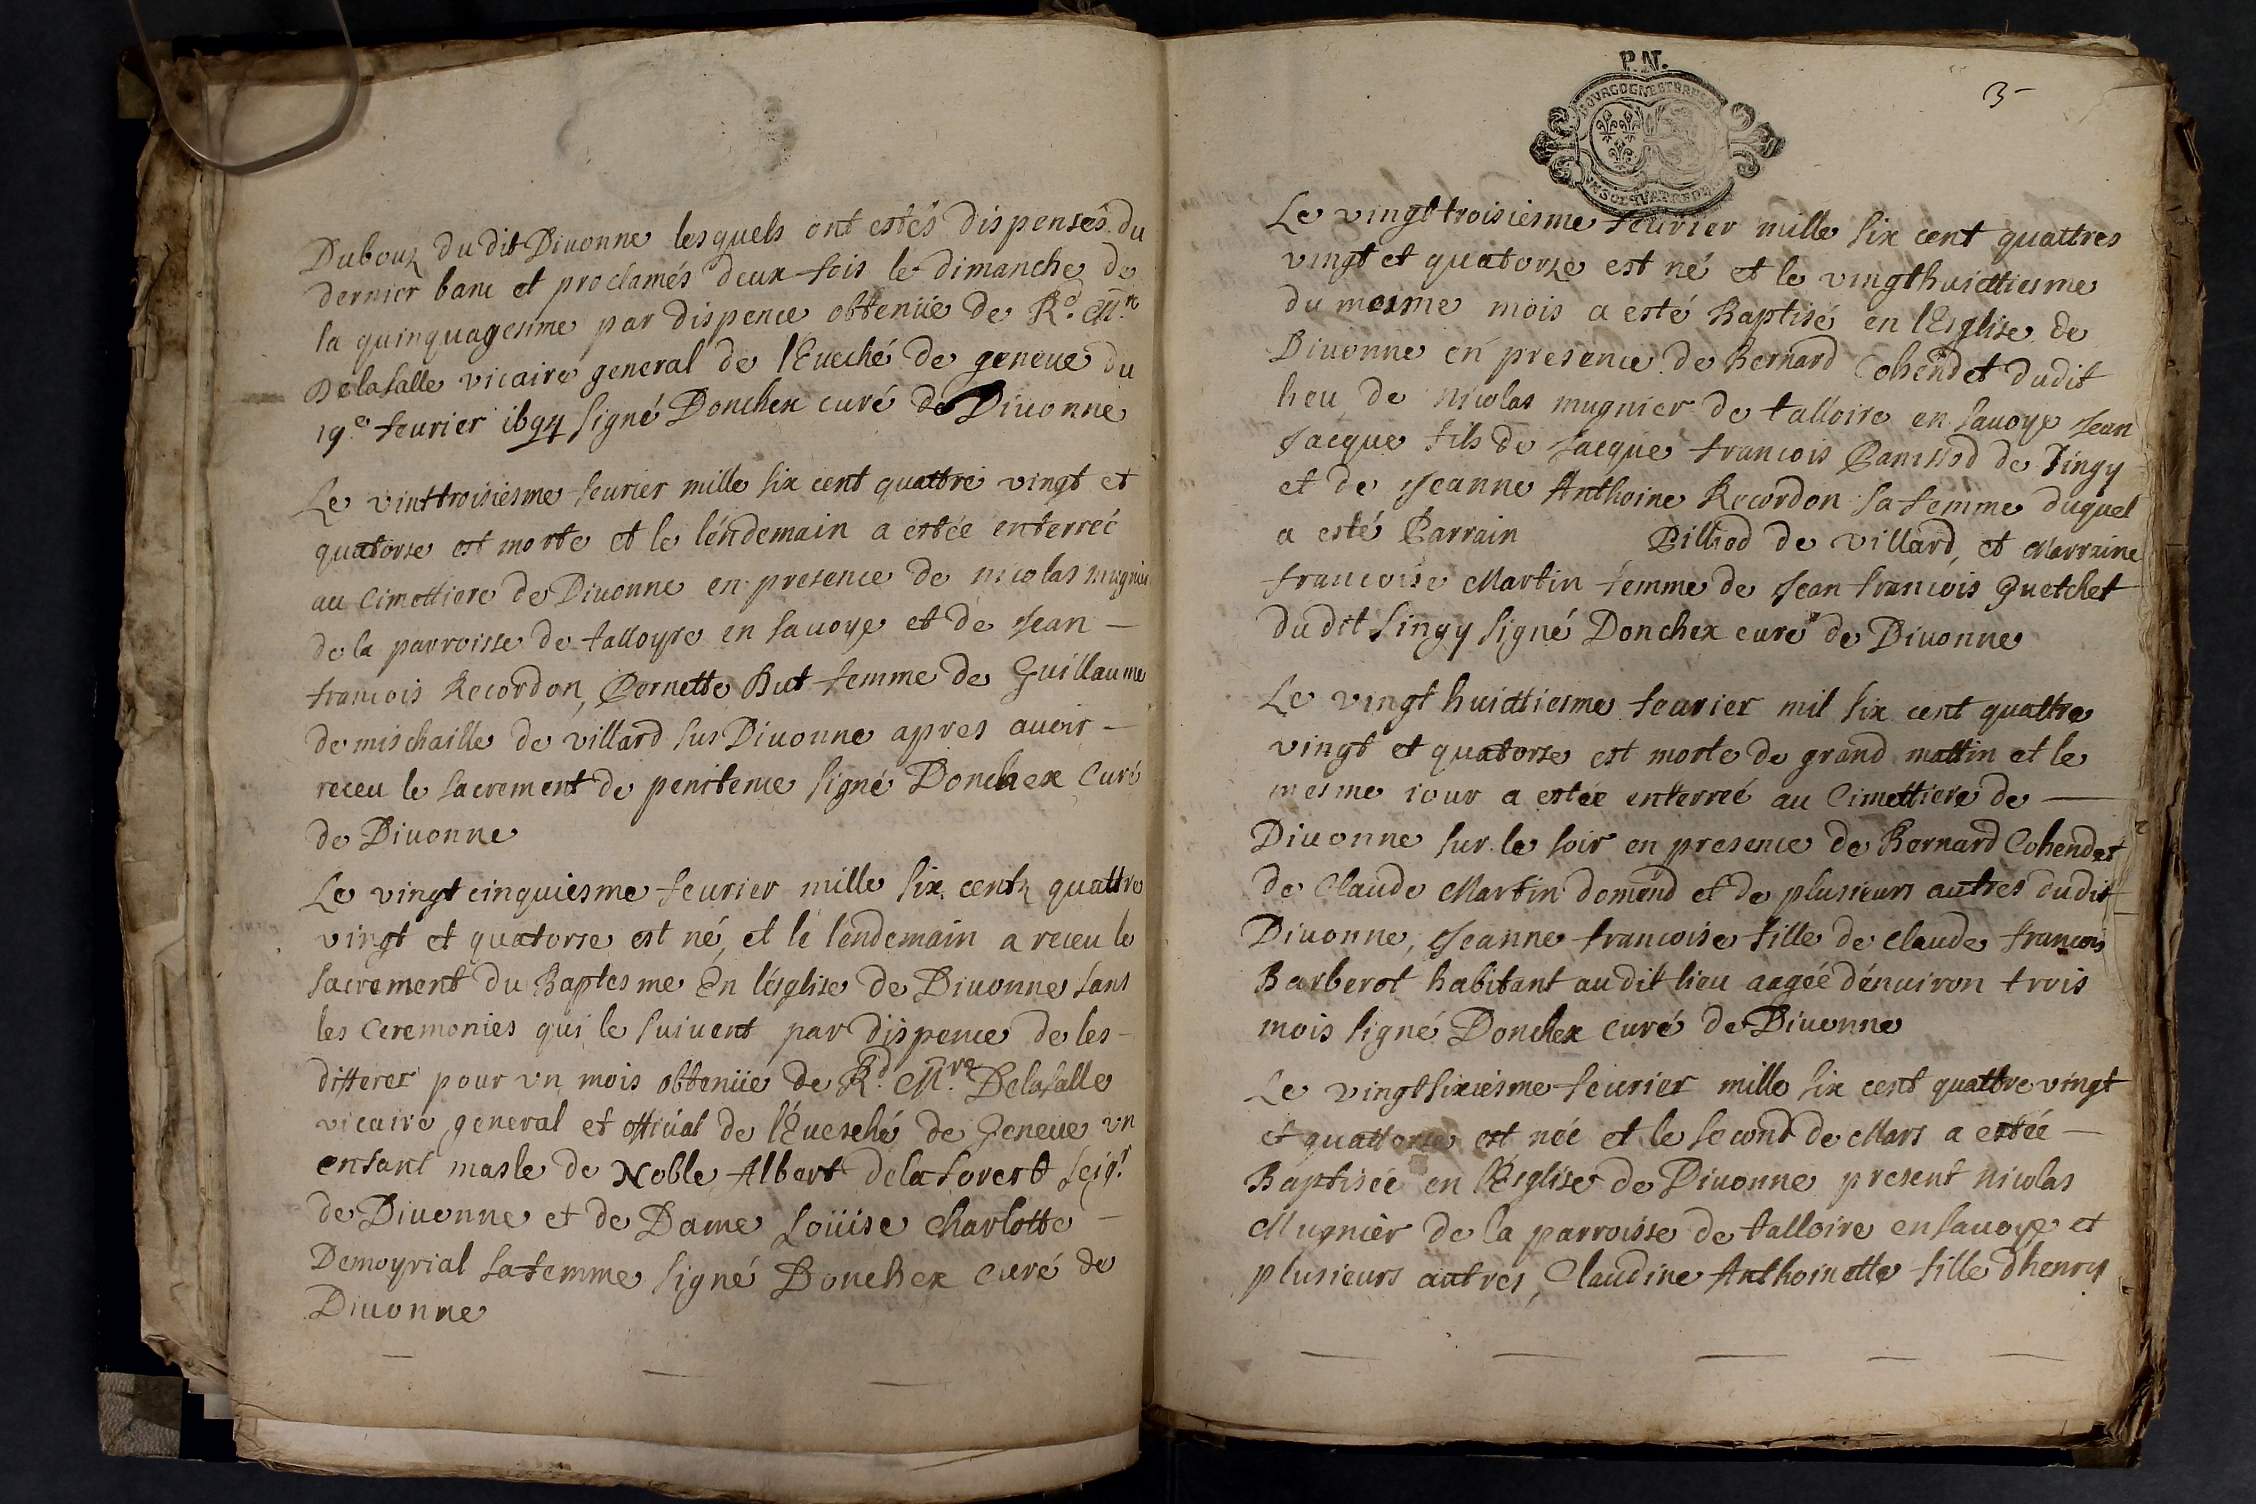 Dubouz du dit Diuonne lesquels ont estés dispensés du
dernier banc et proclamés deux fois le dimanche de
la quinquagesime par dispence obtenüe de R.d M.r
Delasalle vicaire general de l'Eueché de geneue du
19.e feurier 1694 signé Donchex curé de Diuonne
Le vinttroisiesme feurier mille six cent quattre vingt et
quatorse est morte et le léndemain a estée enterreé
au Cimettiere de Diuonne en presence de nicolas mugnier
de la parroisse de talloyre en sauoye et de Jean —
francois Recordon, Pernette But femme de Guillaume
de mischaille de villard sus Diuonne apres auoir —
receu le sacrement de penitence signé Donchex Curé
de Diuonne
Le vingt cinquiesme feurier mille six centz quattre
vingt et quatorse est né, et le lendemain a receu le
sacrement du Baptesme en l'esglise de Diuonne sans
les Ceremonies qui le suiuent par dispence de les-
differer pour vn mois obtenüe de R.d M.re Delasalle
vicaire general et official de l'Euesché de Geneue vn
enfant masle de Noble Albert delaforest seig.r
de Diuonne et de Dame Loüise Charlotte —
Demoyrial sa femme signé Donchex Curé de
Diuonne
P.N.
3
BOVRGOGNE ET BRESSE
Le vingt troisiesme feurier mille six cent quattres
vingt et quatorze est né et le vingthuicttiesme
du mesme mois a esté Baptisé en l'Esglise de
Diuonne en presence de Bernard Cohendet dudit
lieu de nicolas mugnier de talloire en sauoye Jean
Jacque fils de Jacque francois Panissod de Singy
et de Jeanne Anthoine Recordon sa femme duquel
a esté Parrain Pilliod de villard, et Marraine
francoise Martin femme de Jean francois Guetchet
du dit Singy signé Donchex curé de Diuonne
Le vingt huicttiesme feurier mil six cent quattre
vingt et quatorse est morte de grand mattin et le
mesme iour a estée enterreé au Cimettiere de —
Diuonne sur le soir en presence de Bernard Cohendet
de Claude Martin domend et de plusieurs autres dudit
Diuonne, Jeanne francoise fille de Claude francois
Barberot habitant audit lieu aagée d'enuiron trois
mois signé Donchex curé de Diuonne
Le vingtsixiesme feurier mille six cent quattre vingt
et quattorse est née et le second de Mars a estée —
Baptisée en l'Esglise de Diuonne present nicolas
Mugnier de la parroisse de talloire en sauoye et
plusieurs autres, Claudine Anthoinette fille d'henry